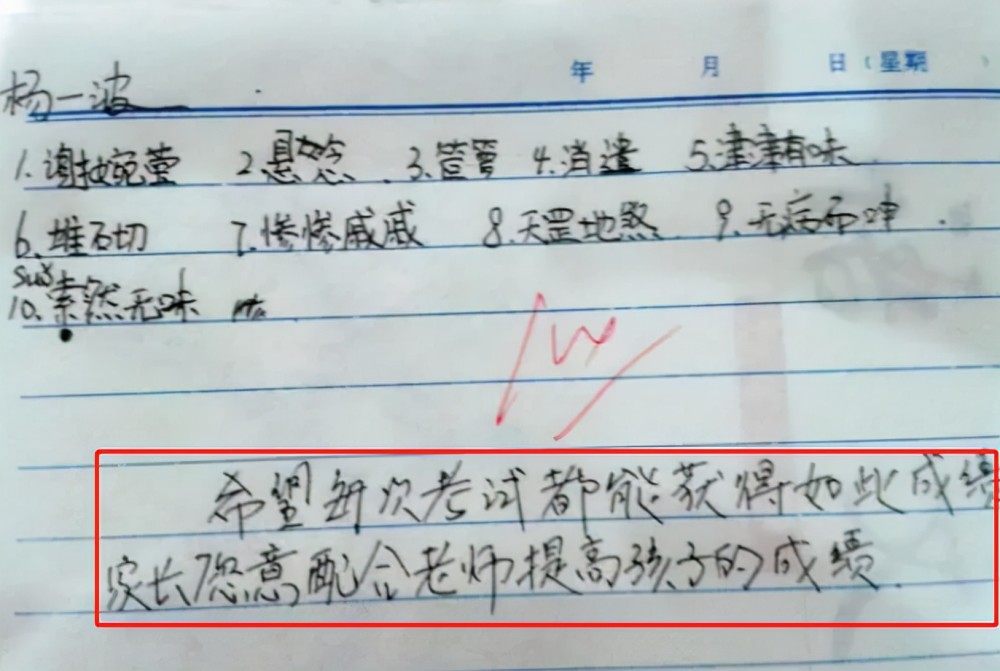 年 月 日(星期 )
杨一波
1. 2.悬念 3. 4.消遣 5.津津有味
6.堆石切 7.惨惨戚戚 8.天罡地煞 9.无病而呻
10.索然无味
希望每次考试都能获得如此成绩
家长愿意配合老师提高孩子的成绩.